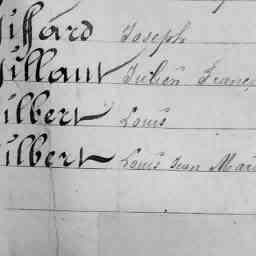 Giffard Joseph
Gillant Julien Franç
Gilbert Louis
Gilbert Louis Jean Mari